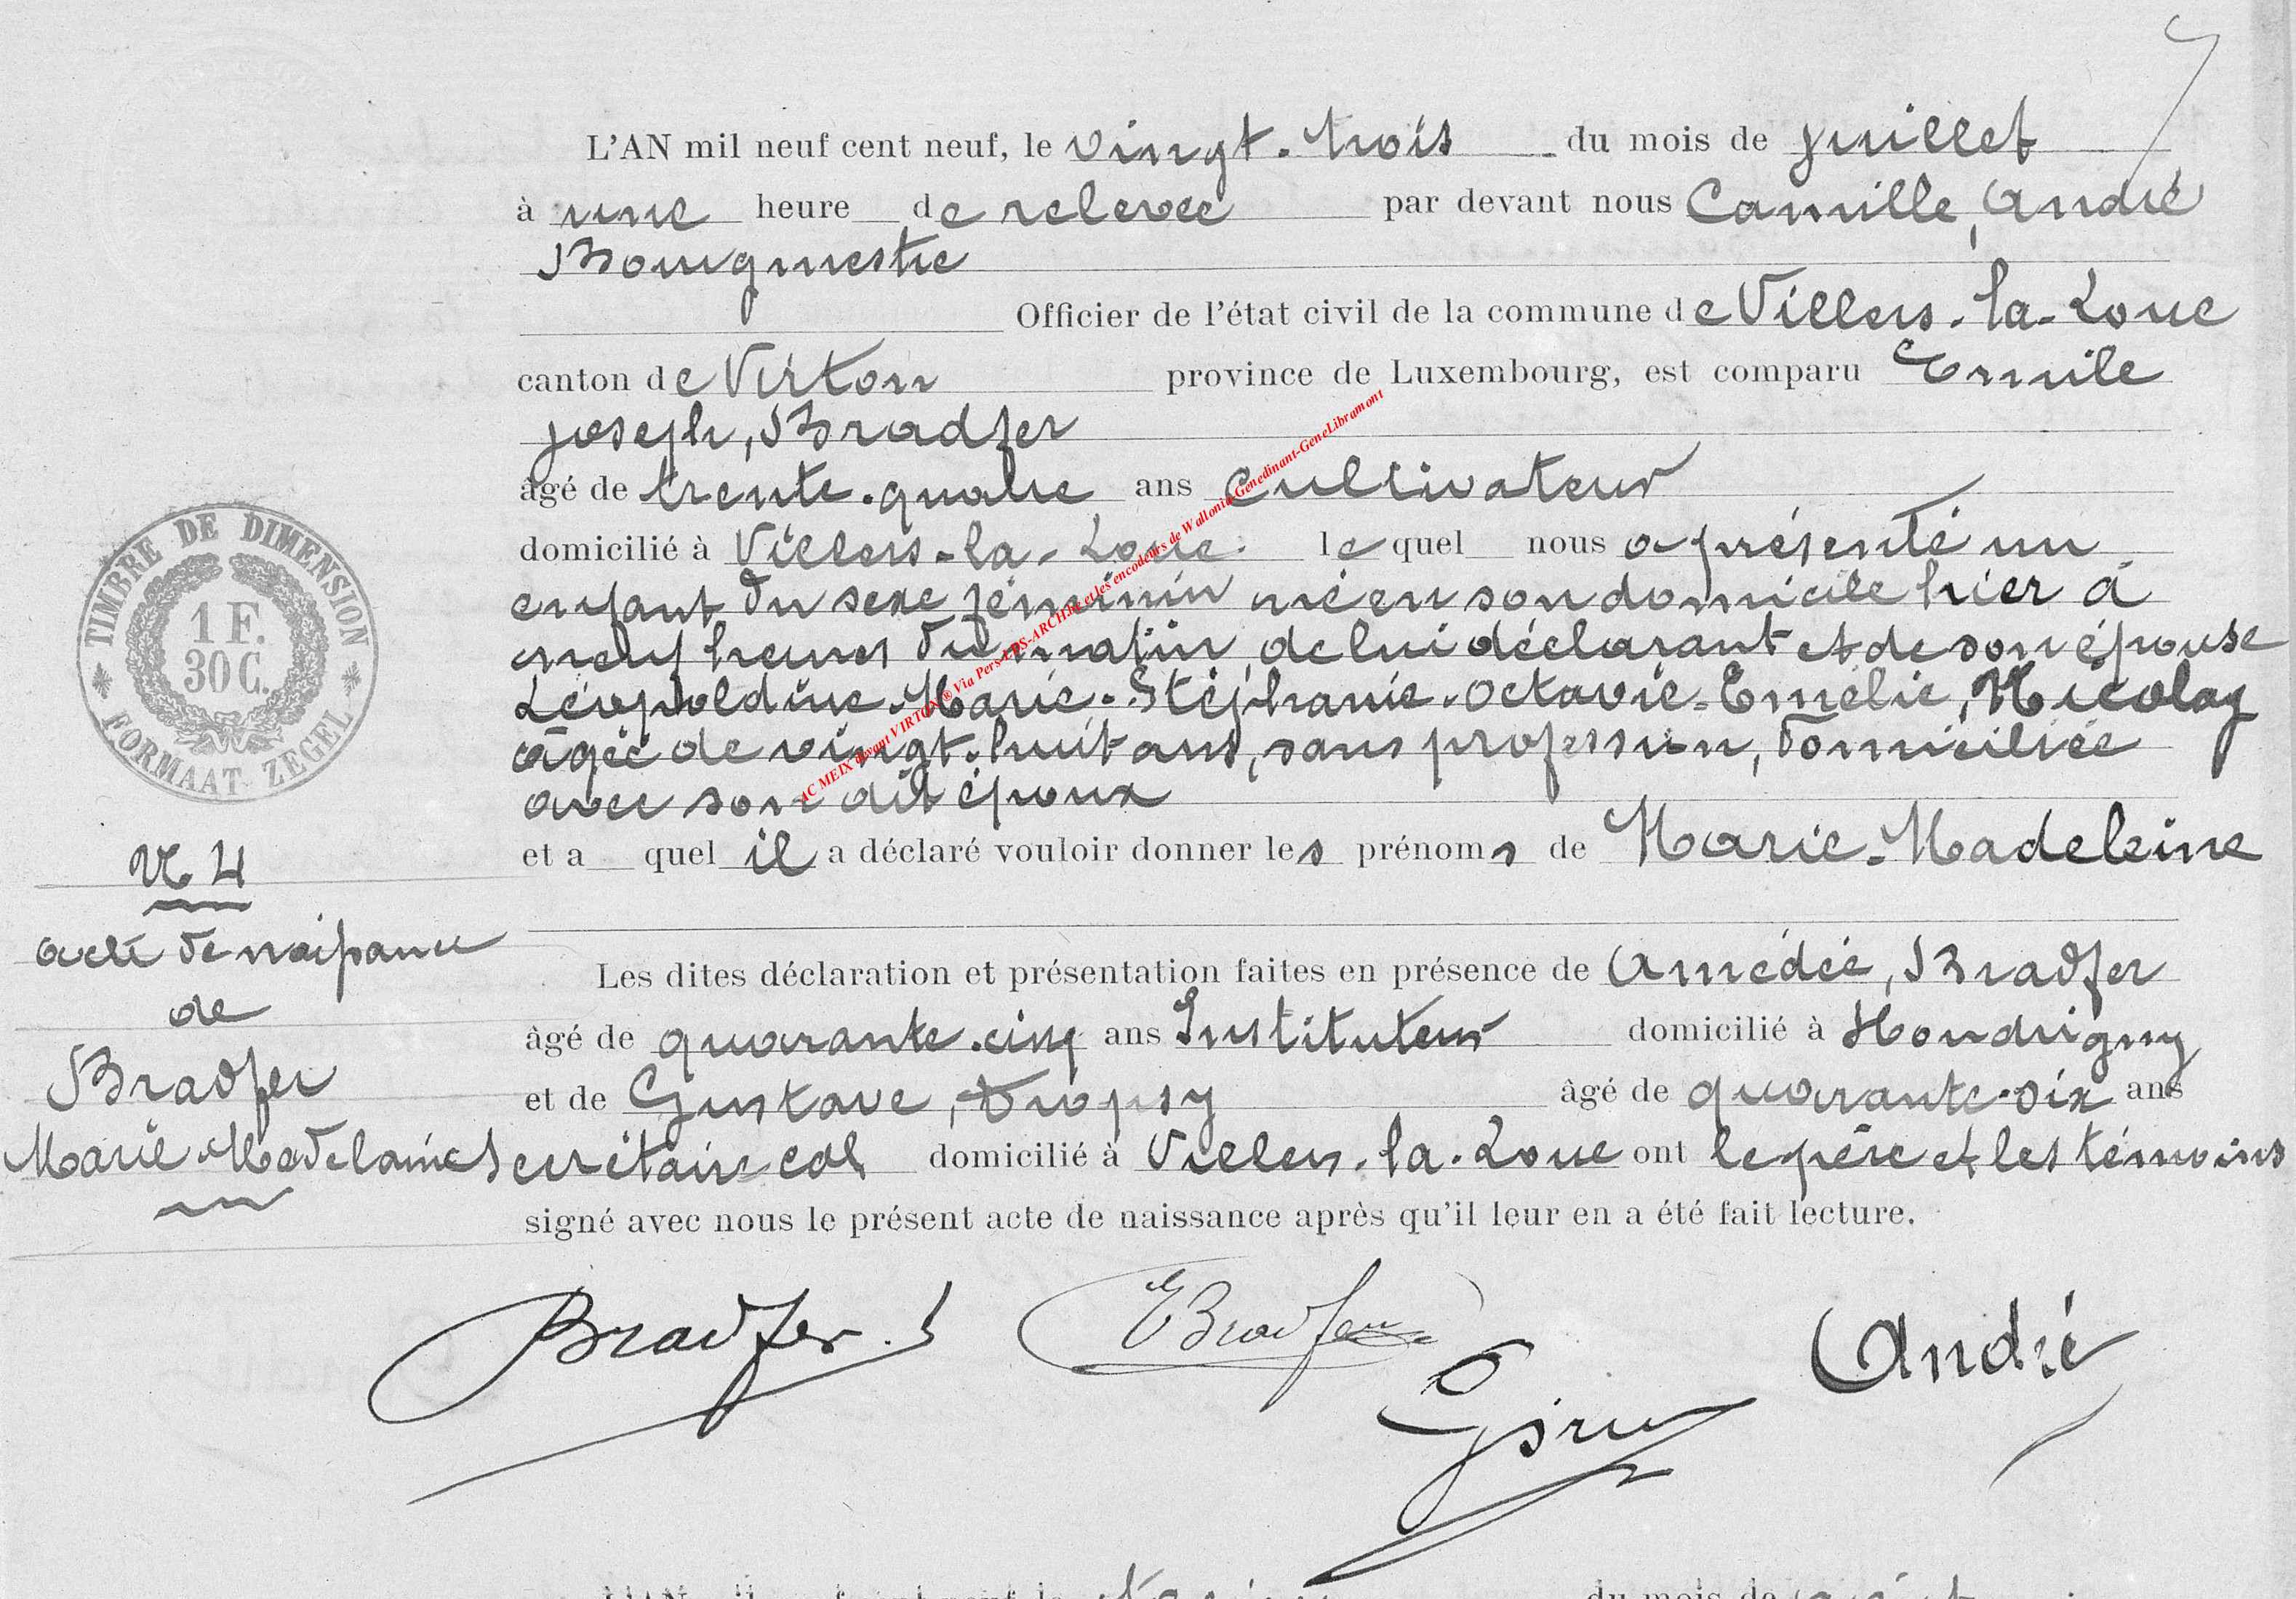 L'AN mil neuf cent neuf, le vingt-trois du mois de juillet
à une heure de relevée par devant nous Camille, André
Bourgmestre
Officier de l'état civil de la commune de Villers-la-Loue
canton de Virton province de Luxembourg, est comparu Emile
Joseph, Bradfer
âgé de trente-quatre ans cultivateur
domicilié à Villers-la-Loue lequel nous a présenté un
enfant du sexe féminin né en son domicile hier à
neuf heures du matin, de lui déclarant et de son épouse
Léopoldine-Marie-Stéphanie-Octavie-Emélie, Nicolay
âgée de vingt-huit ans, sans profession, domiciliée
avec son dit époux
et a quel il a déclaré vouloir donner les prénoms de Marie-Madeleine
Les dites déclaration et présentation faites en présence de Amédée, Bradfer
âgé de quarante-cinq ans Instituteur domicilié à Houdrigny
et de Gustave, Dropsy âgé de quarante-six ans
Secrétaire col domicilié à Villers-la-Loue ont le père et les témoins
signé avec nous le présent acte de naissance après qu'il leur en a été fait lecture.
TIMBRE DE DIMENSION
1 F.
30 C.
FORMAAT-ZEGEL
N 4
acte de naissance
de
Bradfer
Marie-Madelaine
AC MEIX devant VIRTON ® Via Pers-EPS-ARCH.be et les encodeurs de Wallonia-Genedinant-GeneLibramont
Bradfer
EBradfer
André
L'AN mil neuf cent neuf, le du mois de